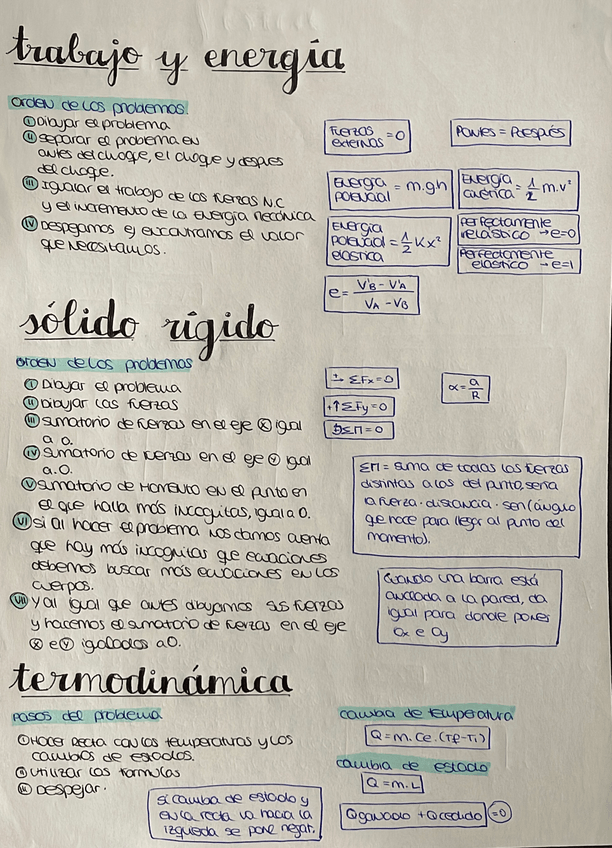 trabajo y energía
orden de los problemas:
I Dibujar el problema
II separar el problema en
antes del choque, el choque y despues
del choque.
III Igualar el trabajo de las fuerzas N.C
y el incremento de la energia mecánica
IV Despejamos y encontramos el valor
que necesitamos.
Fuerzas externas = 0
Pantes = Pdespués
Energia potencial = m.gh
Energía cinética = 1/2 m.v²
Energía potencial elástica = 1/2 Kx²
Perfectamente inelástico → e=0
Perfectamente elástico → e=1
e = V'B - V'A / VA - VB
sólido rígido
orden de los problemas
I Dibujar el problema
II Dibujar las fuerzas
III sumatorio de fuerzas en el eje X igual
a 0.
IV sumatorio de fuerzas en el eje Y igual
a.0.
V sumatorio de Momento en el punto en
el que halla más incognitas, igual a 0.
VI si al hacer el problema nos damos cuenta
que hay más incognitas que ecuaciones
debemos buscar más ecuaciones en los
cuerpos.
VII y al igual que antes dibujamos sus fuerzas
y hacemos el sumatorio de fuerzas en el eje
X e Y igualados a 0.
+→ ΣFx=0
+↑ΣFy=0
ΣM=0
α = a/R
ΣM = suma de todas las fuerzas
distintas a las del punto, seria
la fuerza · distancia · sen (ángulo
que hace para llegar al punto del
momento).
Cuando una barra está
anclada a la pared, da
igual para donde pones
Ox e Oy
termodinámica
pasos del problema
I Hacer Recta con las temperaturas y los
cambios de estados.
II utilizar las formulas
III Despejar.
si cambia de estado y
en la recta va hacia la
izquierda se pone negat.
cambia de temperatura
Q = m.Ce.(Tf-Ti)
cambia de estado
Q = m.L
Qganado + Qcedido = 0